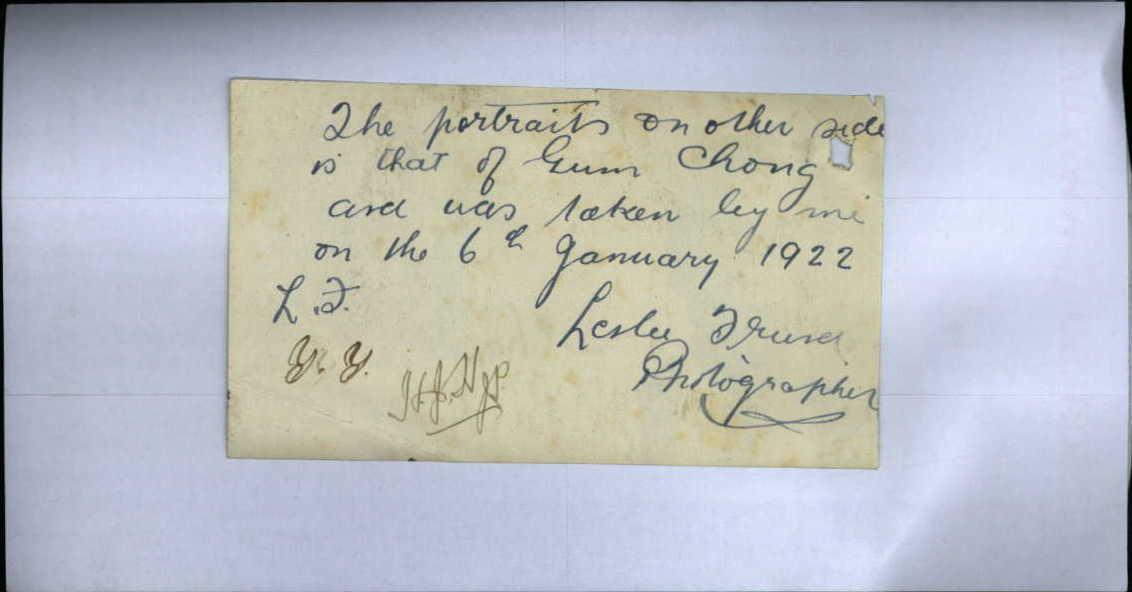 The portraits on other side
is that of Gum Chong
and was taken by me
on the 6th January 1922
L.F.
Leslie
Y. Y.
Photographer